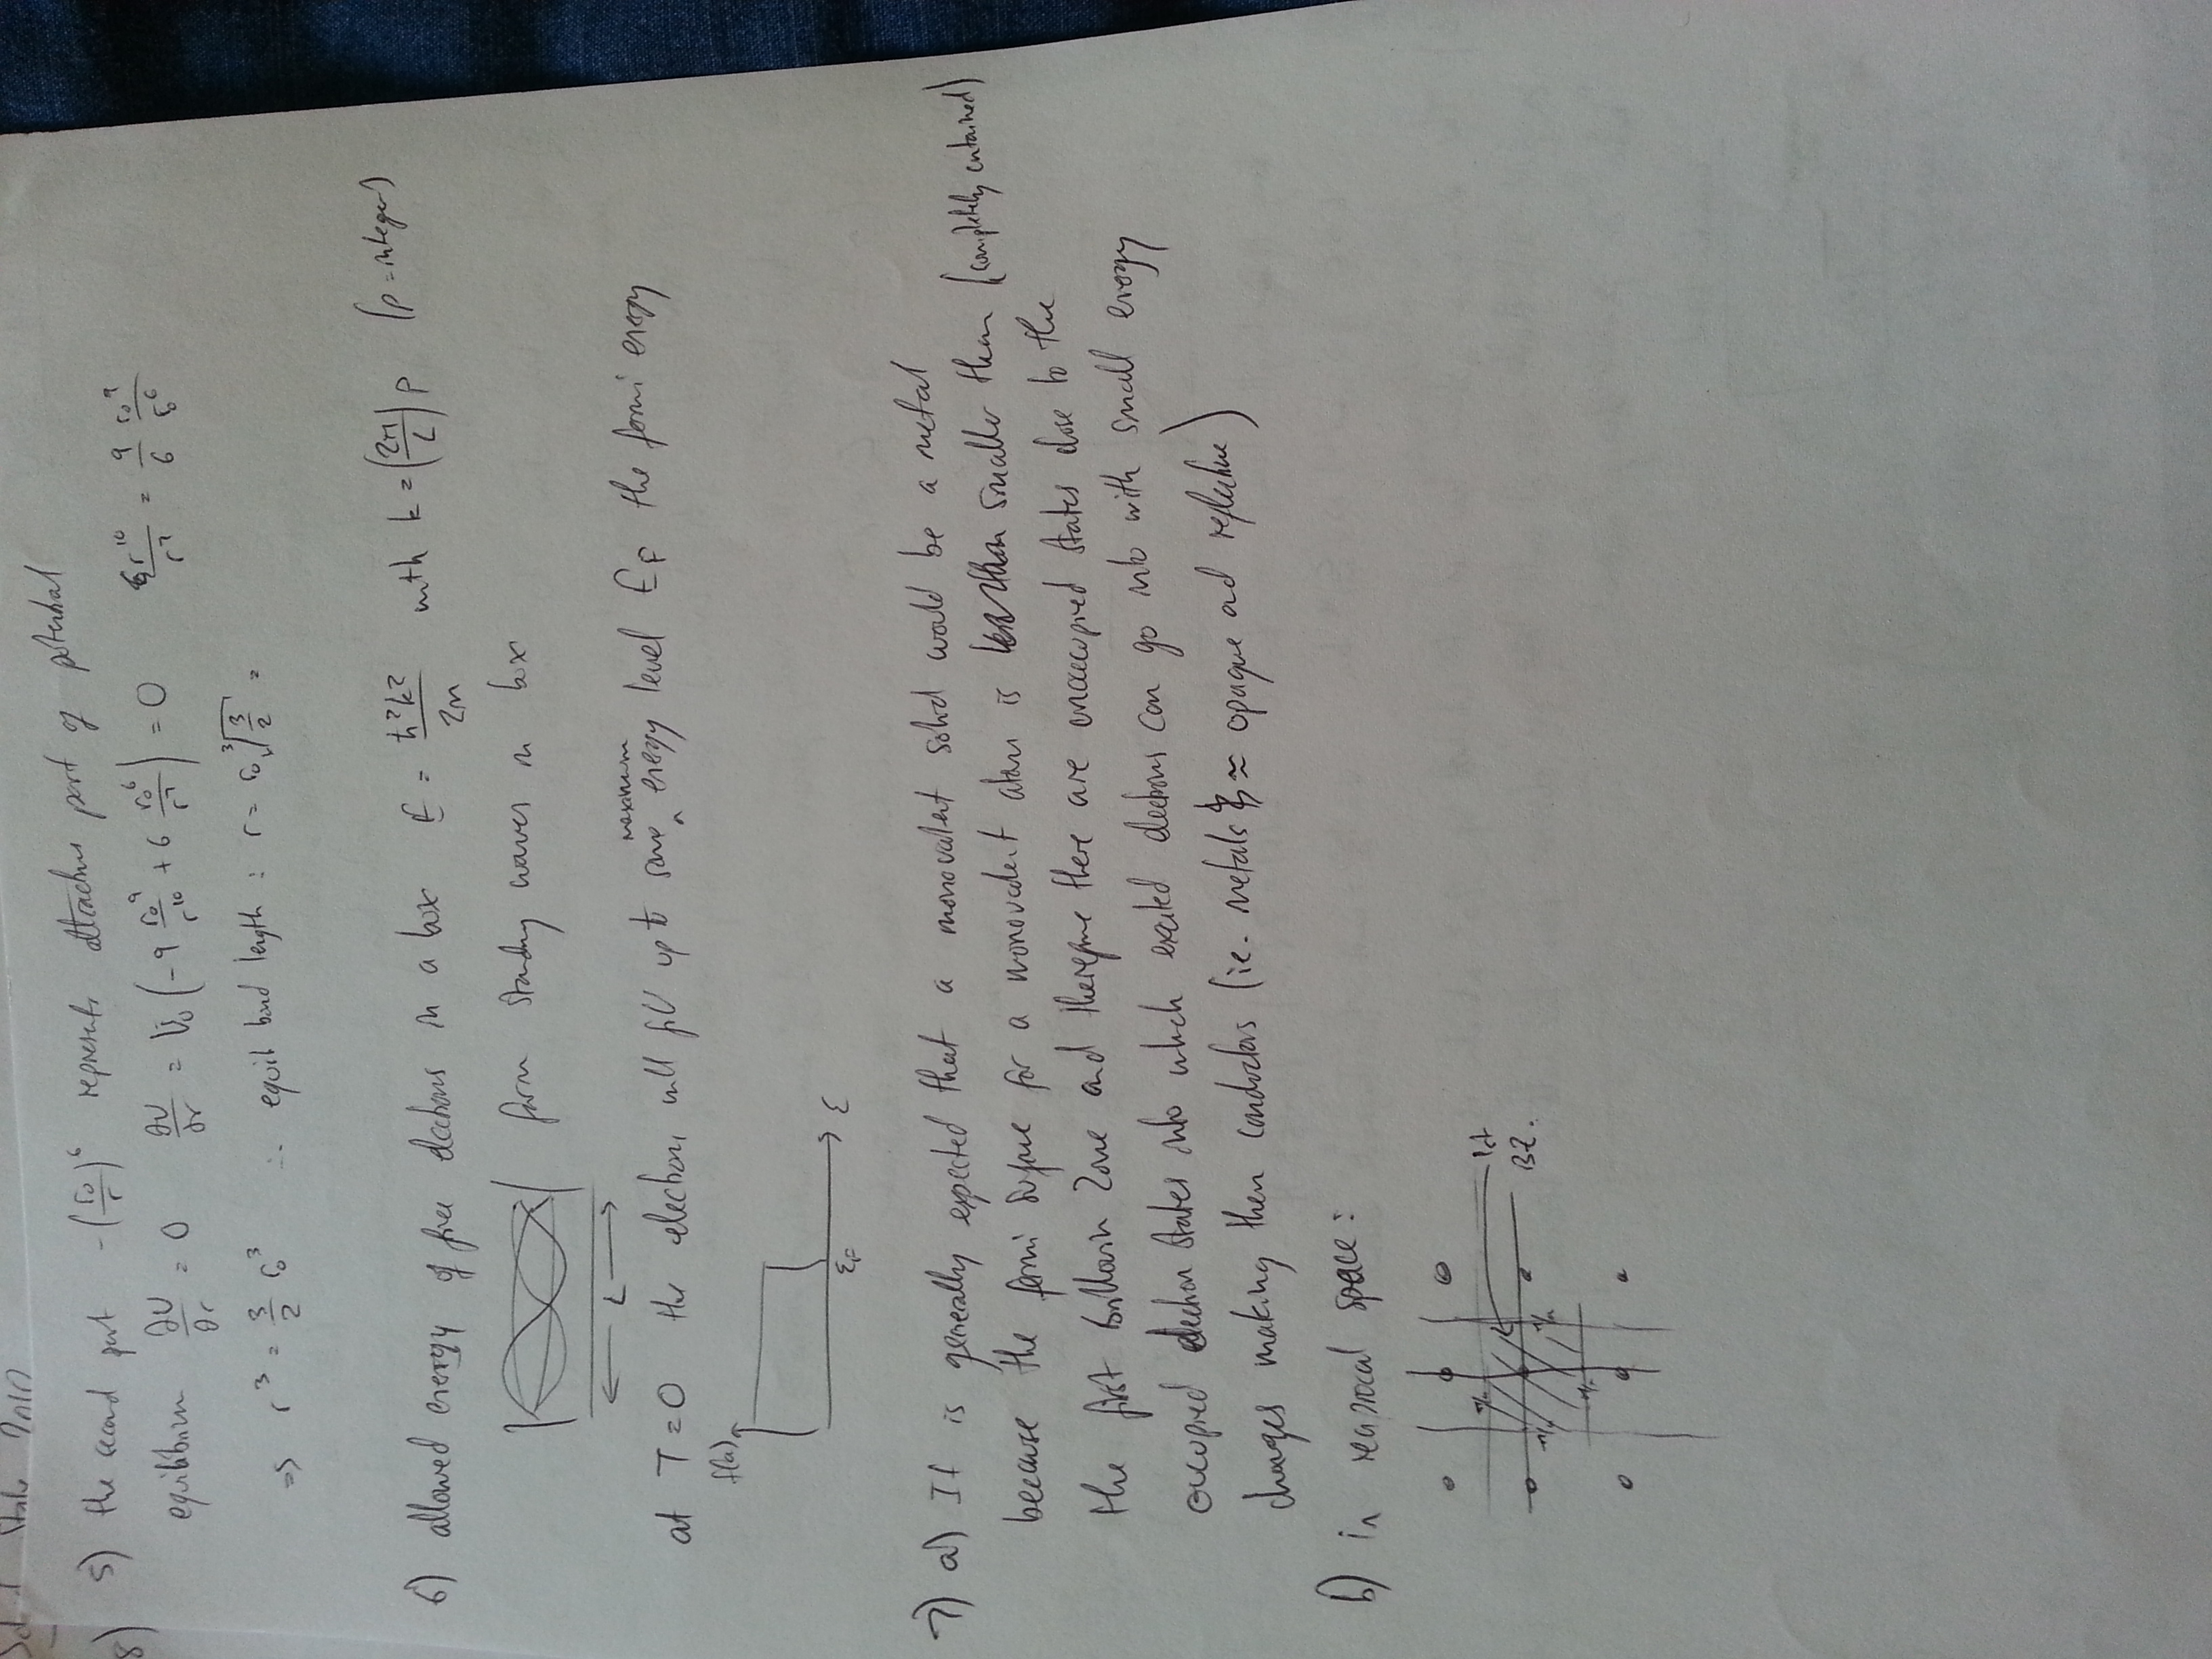 Solid State 2010
8)
5) the second part -(r₀/r)⁶ represents attractive part of potential
equilibrium ∂U/∂r = 0 ∂U/∂r = U₀(-9 r₀⁹/r¹⁰ + 6 r₀⁶/r⁷) = 0 r¹⁰/r⁷ = 9/6 r₀⁹/r₀⁶
⇒ r³ = 3/2 r₀³ ∴ equilib bond length : r = r₀ ∛(3/2) =
6) allowed energy of free electrons in a box E = ħ²k²/2m with k = (2π/L) p (p = integer)
form standing waves in box
L
maximum
at T = 0 the electrons will fill up to some ^ energy level E_F the fermi energy
f(ε)
ε
ε_F
7) a) It is generally expected that a monovalent solid would be a metal
because the fermi surface for a monovalent atom is smaller than (completely contained)
the first Brillouin Zone and therefore there are unoccupied states close to the
occupied electron states into which excited electrons can go into with small energy
changes making them conductors (ie. metals ≈ opaque and reflective)
b) in reciprocal space:
π/a
1st
BZ.
-π/a π/a
-π/a